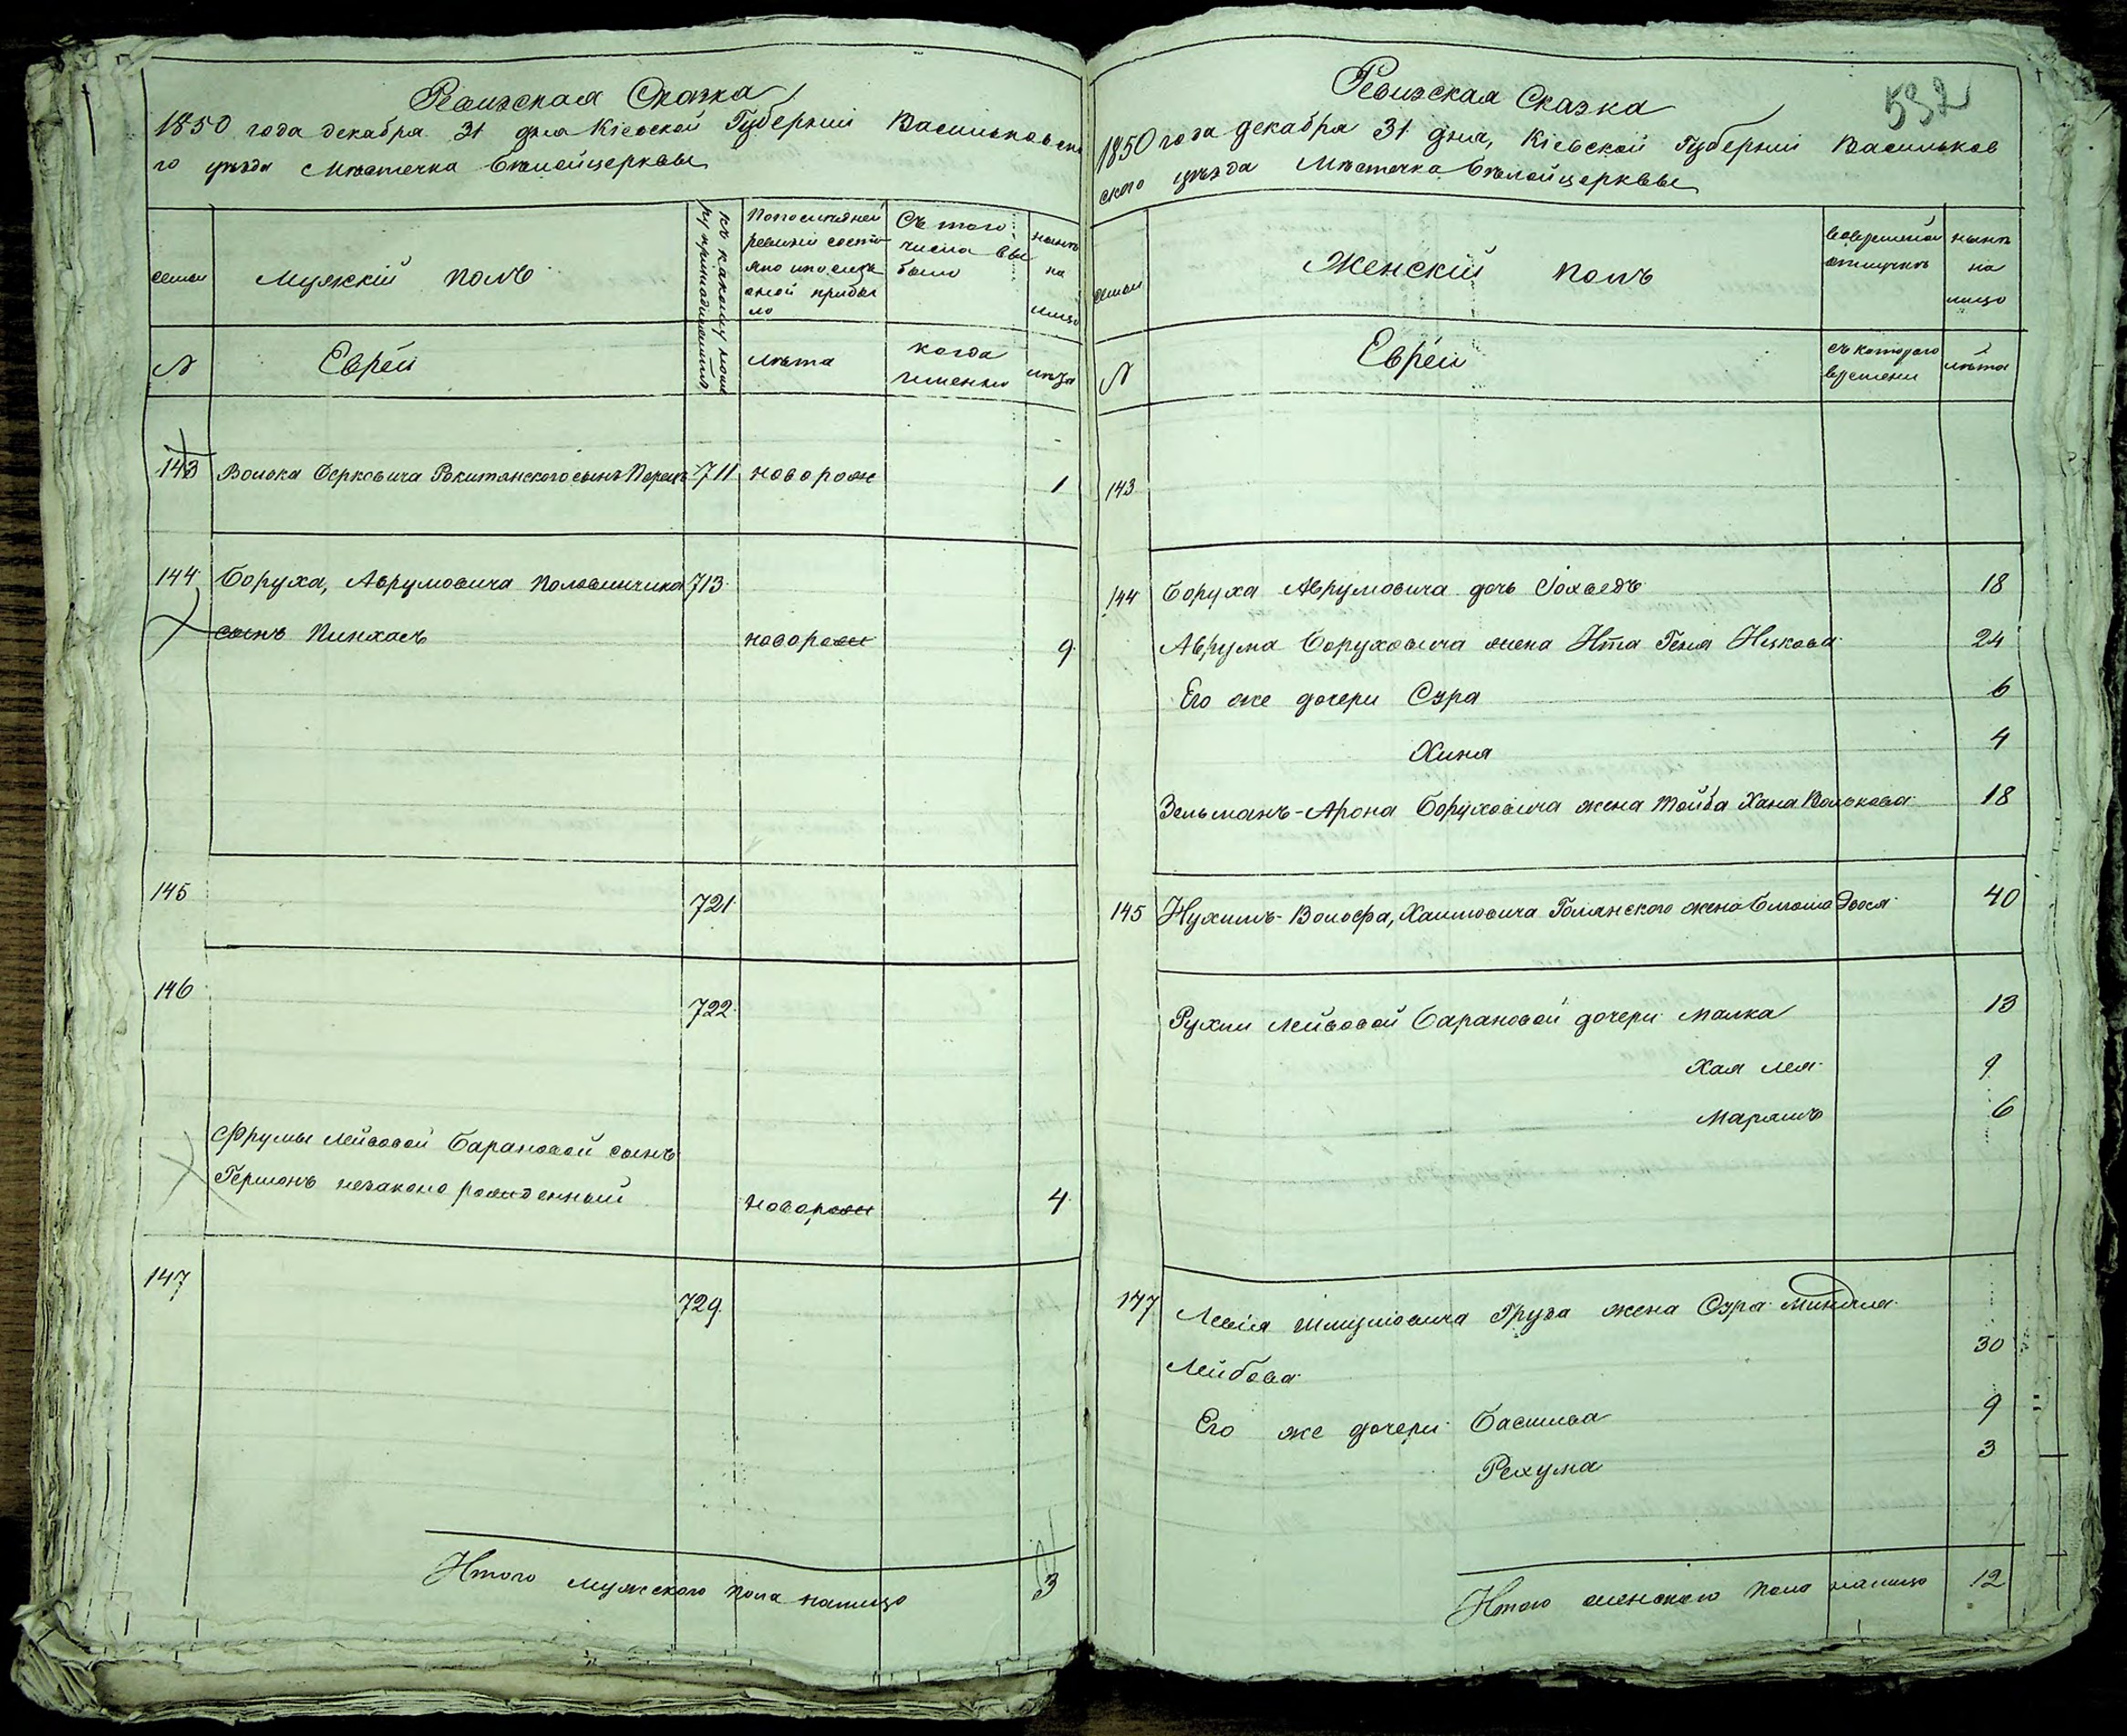 Ревизская Сказка
1850 года декабря 31 дня Кіевской Губерніи Васильковско
го уѣзда Мѣстечка Бѣлойцерквы
семьи
Мужскій полъ
къ какому номе
ру принадлежитъ
По последней
ревизіи состо
яло и после
оной прибы
ло
Съ того
числа вы
было
нынѣ
на
лицо
№
Евреи
лѣта
когда
именно
лѣта
143 Волька Берковича Рокитянского сынъ Перецъ 711 новорож 1
144 Боруха, Аврумовича Половинчика 713
сынъ Пинхасъ новорож 9
145 721
146 722
Фрумы Лейбовой Барановой сынъ
Гершонъ незаконо рожденный новорож 4
147 729
Итого мужского пола налицо 3
532
Ревизская Сказка
1850 года декабря 31 дня, Кіевской Губерніи Васильков
ского уѣзда Мѣстечка Бѣлойцерквы
семьи
Женскій полъ
во временной
отлучкѣ
нынѣ
на
лицо
№
Евреи
съ которого
времени
лѣта
143
144 Боруха Аврумовича дочь Іохведъ 18
Аврума Боруховича жена Ита Геня Ицкова 24
Его же дочери Сура 6
Хиня 4
Зельманъ-Арона Боруховича жена Тойба Хана Волькова 18
145 Нухимъ-Вольфа, Хаимовича жена Двося 40
146
Рухли Лейбовой Барановой дочери Малка 13
Хая Лея 9
Марямъ 6
147 Левія Шмулевича Груза жена Сура Миндля
Лейбова 30
Его же дочери Басшива 9
Рехума 3
Итого женского пола налицо 12